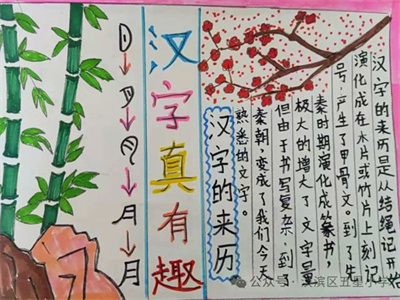 汉字真有趣
月
月
汉字的来历
汉字的来历是从结绳记开始
演化成在木片或竹片上刻记
号,产生了甲骨文。到了先
秦时期演化成篆书,
极大的增大了文字量
但由于书写复杂,到了
秦朝,变成了我们今天
熟悉的文字。
公众号 滨区五里小学